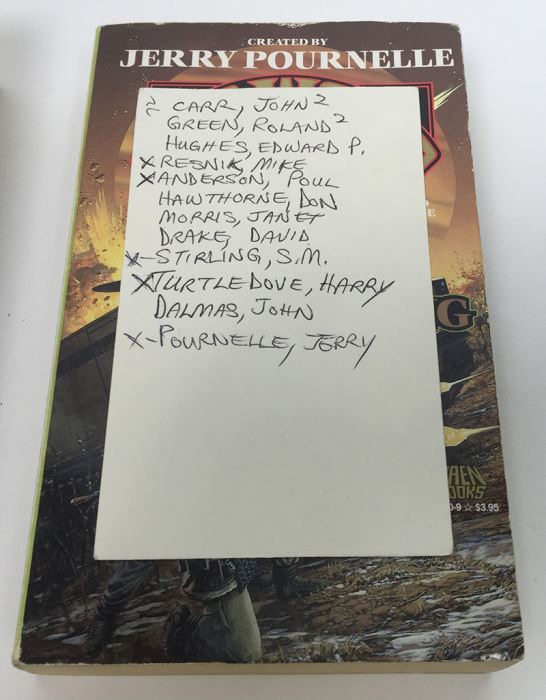 CREATED BY
JERRY POURNELLE
CARR, JOHN 2
GREEN, ROLAND 2
HUGHES, EDWARD P.
X RESNIK, MIKE
X ANDERSON, POUL
HAWTHORNE, DON
MORRIS, JANET
DRAKE, DAVID
X-STIRLING, S.M.
X TURTLEDOVE, HARRY
DALMAS, JOHN
X-POURNELLE, JERRY
G
AEN
OOKS
0-9 ☆ $3.95